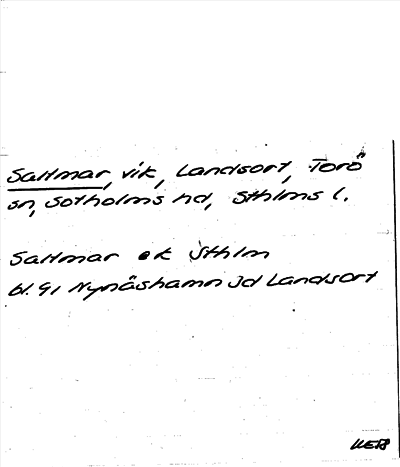 Saltmar, vik, Landsort, Torö
sn, Sotholms hd, Sthlms l.
Saltmar ek Sthlm
bl. 91 Nynäshamn Jd Landsort